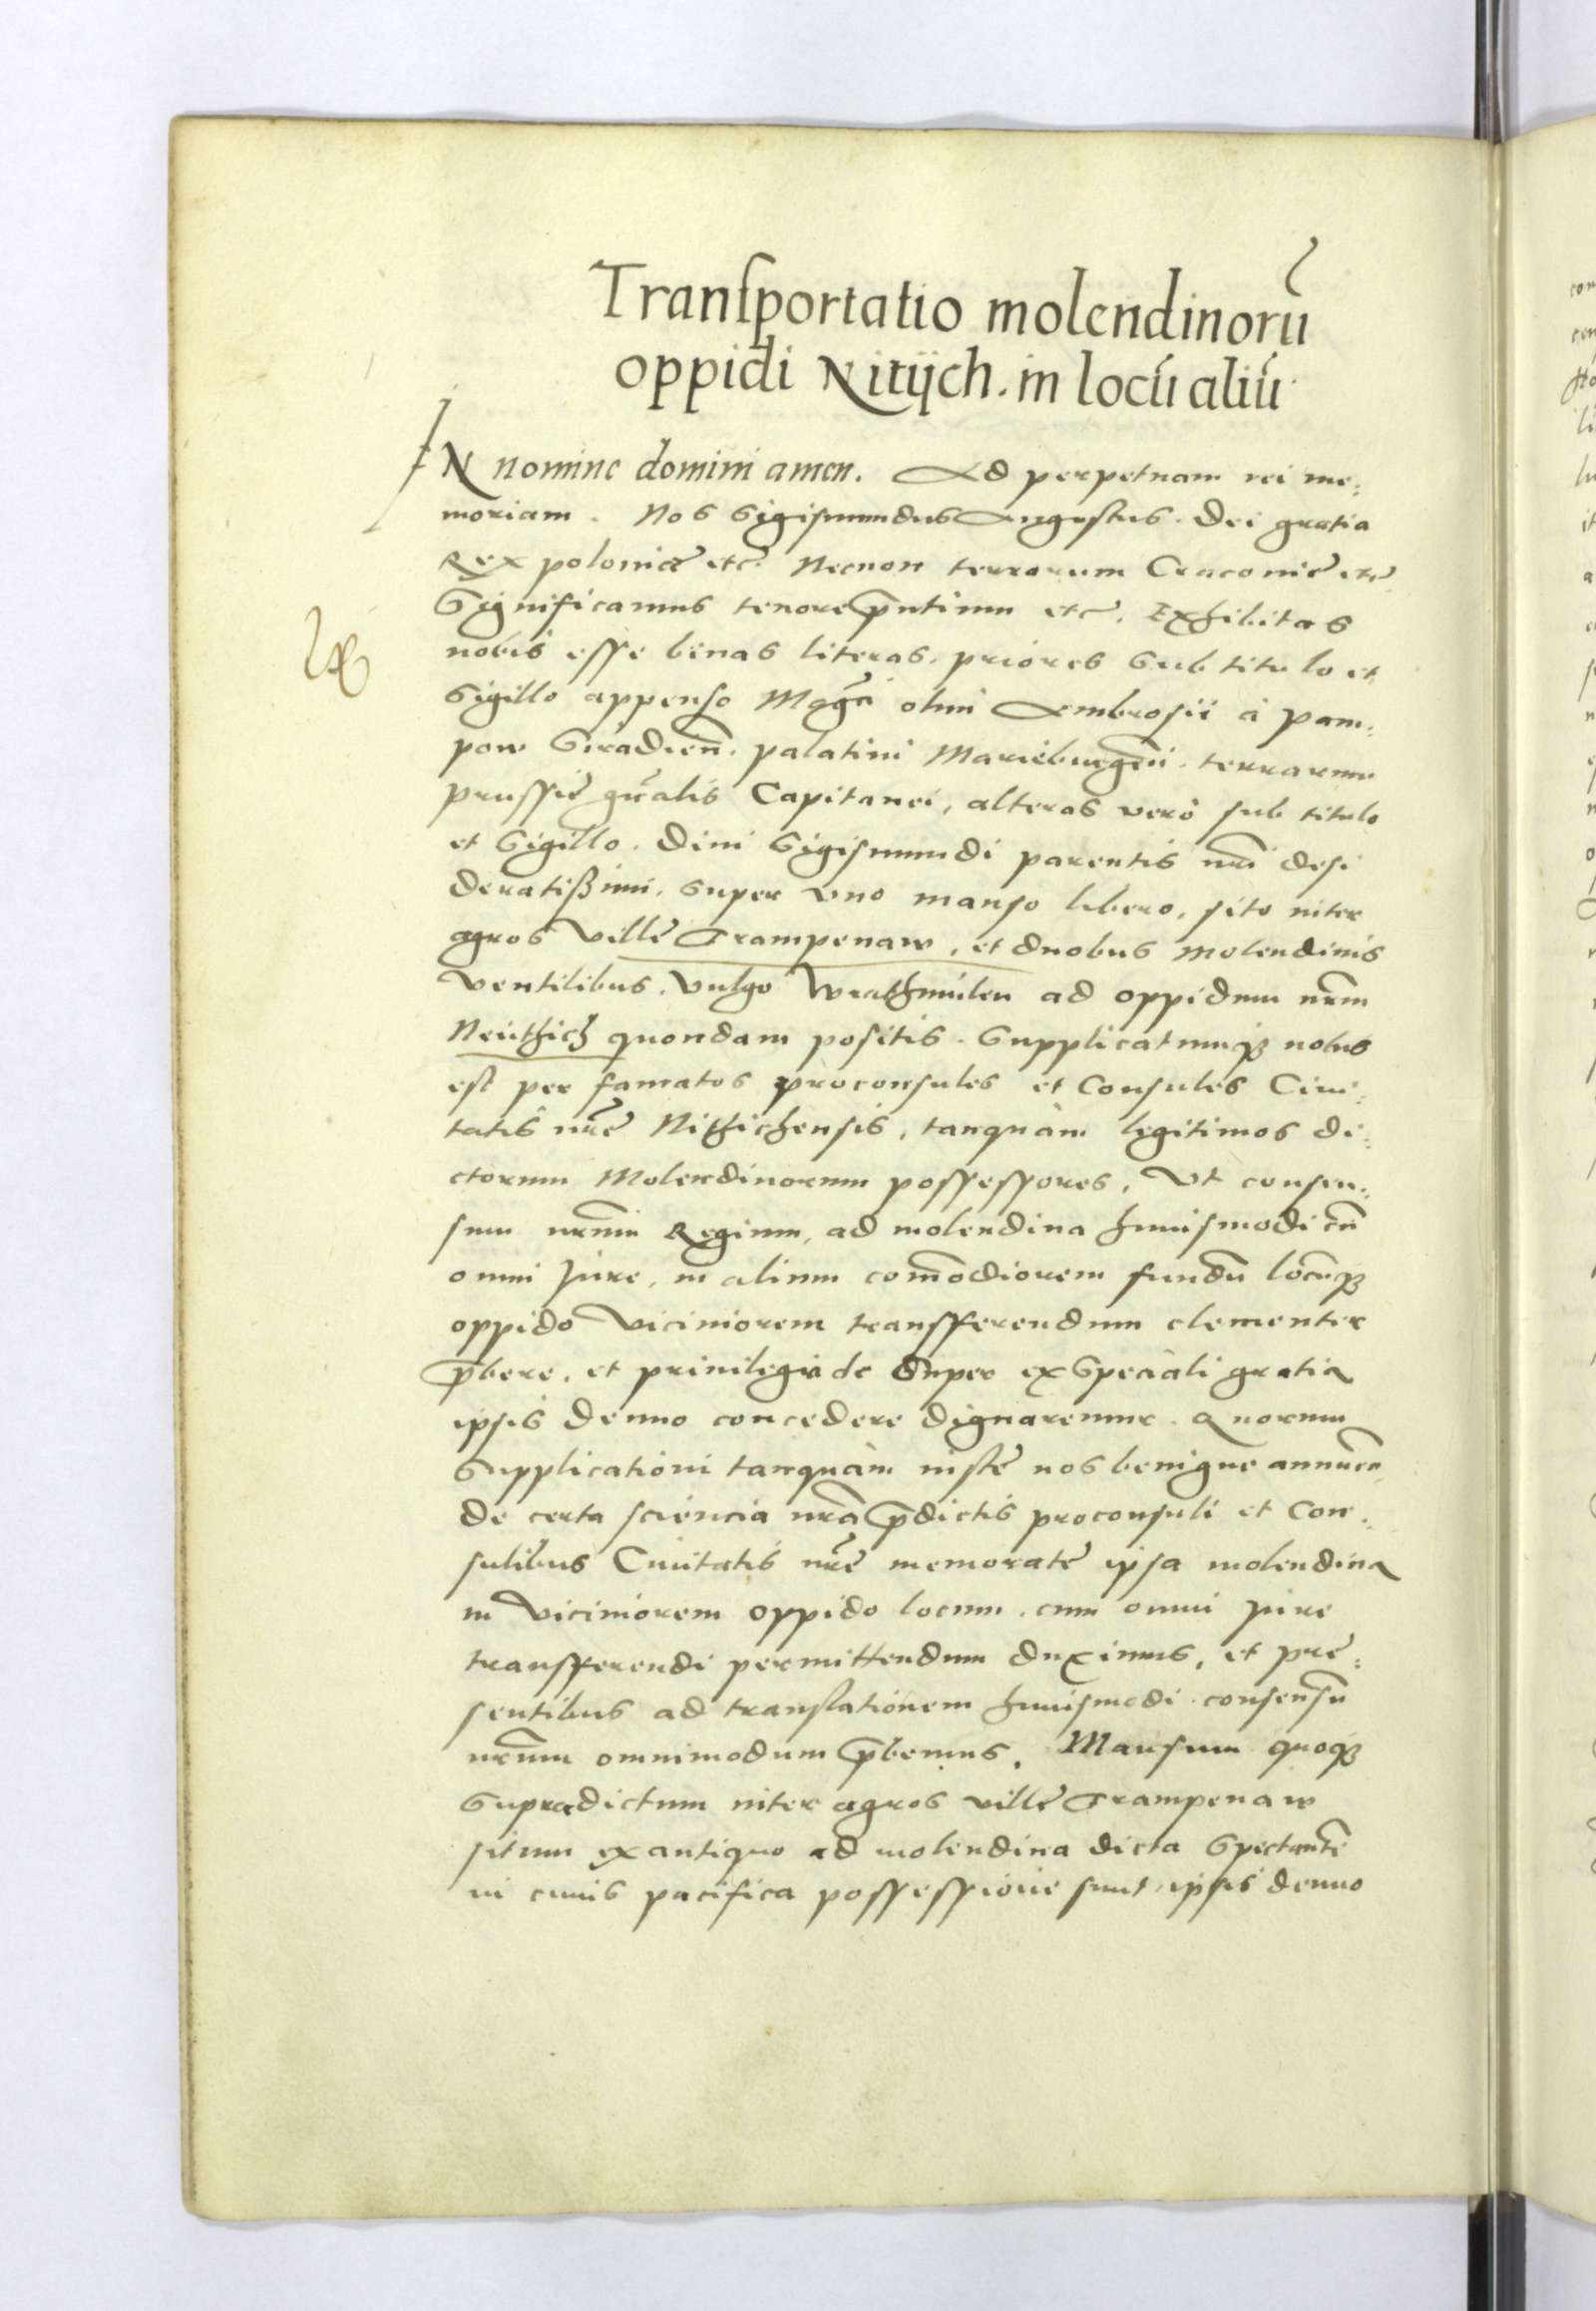 Transportatio molendinorū
oppidi Nitijch. in locū aliū
IN nomine domini amen. Ad perpetuam rei me:
moriam. Nos Sigismundus Augustus. Dei gratia
Rex poloniæ etc. Necnon terrarum Cracoviẹ etc
Significamus tenore p̄ntium etc. Exhibitas
nobis esse binas literas. priores sub titulo et
Sigillo appenso Magci olim Ambrosii à Pam:
pow Siradien̄. palatini Marieburgen̄. terrarum
prussiẹ gn̄alis Capitanei, alteras verò sub titulo
et Sigillo. Divi Sigismundi parentis nr̄i desi
deratißimi. super vno manso libero, sito inter
agros villẹ Trampenaw, et duobus molendinis
ventilibus. vulgo Wrathmulen ad oppidum nr̄m
Neuthich quondam positis. Supplicatumq₃ nobis
est per famatos proconsules et Consules Ciui:
tatis nr̄ẹ Nithichensis, tanquàm legitimos di:
ctorum Molendinorum possessores, Vt consen:
sum nr̄um Regium, ad molendina huiusmodi cū
omni Jure, in alium com̄odiorem fundū locūq₃
oppido viciniorem transfferendum clementer
p̄bere, et priuilegia de super ex Speciali gratia
ipsis denuo concedere dignaremur. Quorum
Supplicationi tanquàm iustẹ nos benigne annuen̄
de certa sciencia nr̄a p̄dictis proconsuli et Con:
sulibus Ciuitatis nr̄ẹ memoratẹ ipsa molendina
in viciniorem oppido locum. cum omni Jure
transfferendi permittendum duximus, et prẹ:
sentibus ad translationem huiusmodi consensū
nr̄um omnimodum p̄bemus. Mansum quoq₃
Supradictum inter agros villẹ Trampenaw
situm ex antiquo ad molendina dicta Spectantē
in cuius pacifica possessione sunt, ipsis denuo